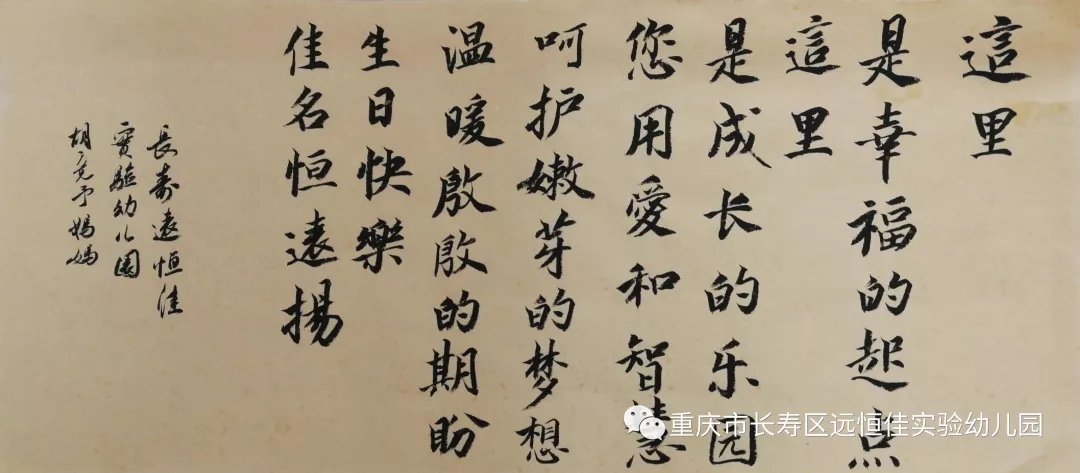 這里
是幸福的起点
這里
是成长的乐园
您用愛和智慧
呵护嫩芽的梦想
温暖殷殷的期盼
生日快樂
佳名恒遠揚
長壽遠恒佳
實驗幼儿園
胡竞予媽媽
重庆市长寿区远恒佳实验幼儿园